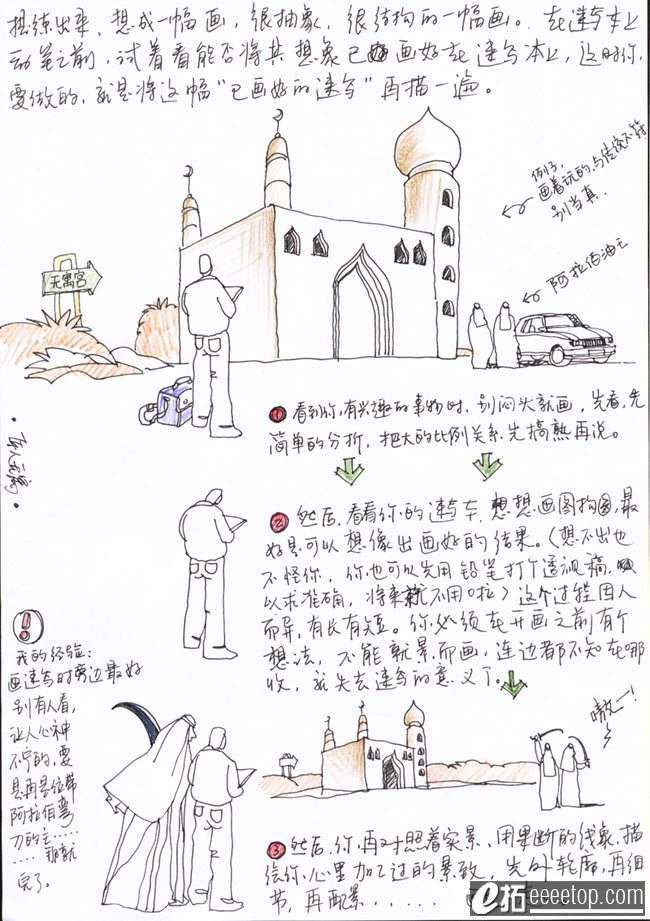 提练出来，想成一幅画，很抽象，很结构的一幅画。在速写本上
动笔之前，试着看能否将其想象已画好在速写本上，这时你
要做的，就是将这幅“已画好的速写”再描一遍。
例子，
画着玩的，与传统不符
别当真．
无离宫
阿拉伯油王
① 看到你有兴趣的事物时，别闷头就画，先看，先
简单的分析，把大的比例关系先搞熟再说。
② 然后，看看你的速写本，想想画图构图，最
好是可以想像出画好的结果。（想不出也
不怪你，你也可以先用铅笔打个透视稿，
以求准确，将来就不用啦）这个过程因人
而异，有长有短。你必须在开画之前有个
想法，不能就景而画，连边都不知在哪
收，就失去速写的意义了。
我的经验：
画速写时旁边最好
别有人看，
让人心神
不宁的，要
是再是位带
阿拉伯弯
刀的主……
……那就
完了。
嗷～！
③ 然后，你再对照着实景，用果断的线条，描
绘你心里加工过的景致，先外轮廓，再细
节，再配景……
e拓 eeeetop.com